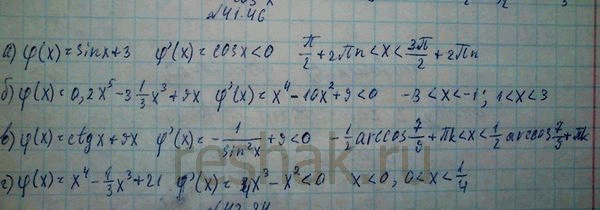 №41.46
а) φ(x) = sinx+3 φ'(x) = cosx<0 π/2 + 2πn < x < 3π/2 + 2πn
б) φ(x) = 0,2x⁵ - 3 1/3 x³ + 9x φ'(x) = x⁴ - 10x² + 9 < 0 -3 < x < -1; 1 < x < 3
в) φ(x) = ctgx + 9x φ'(x) = -1/sin²x + 9 < 0 -1/2 arccos 7/9 + πk < x < 1/2 arccos 7/9 + πk
г) φ(x) = x⁴ - 1/3 x³ + 21 φ'(x) = 4x³ - x² < 0 x < 0, 0 < x < 1/4
reshak.ru